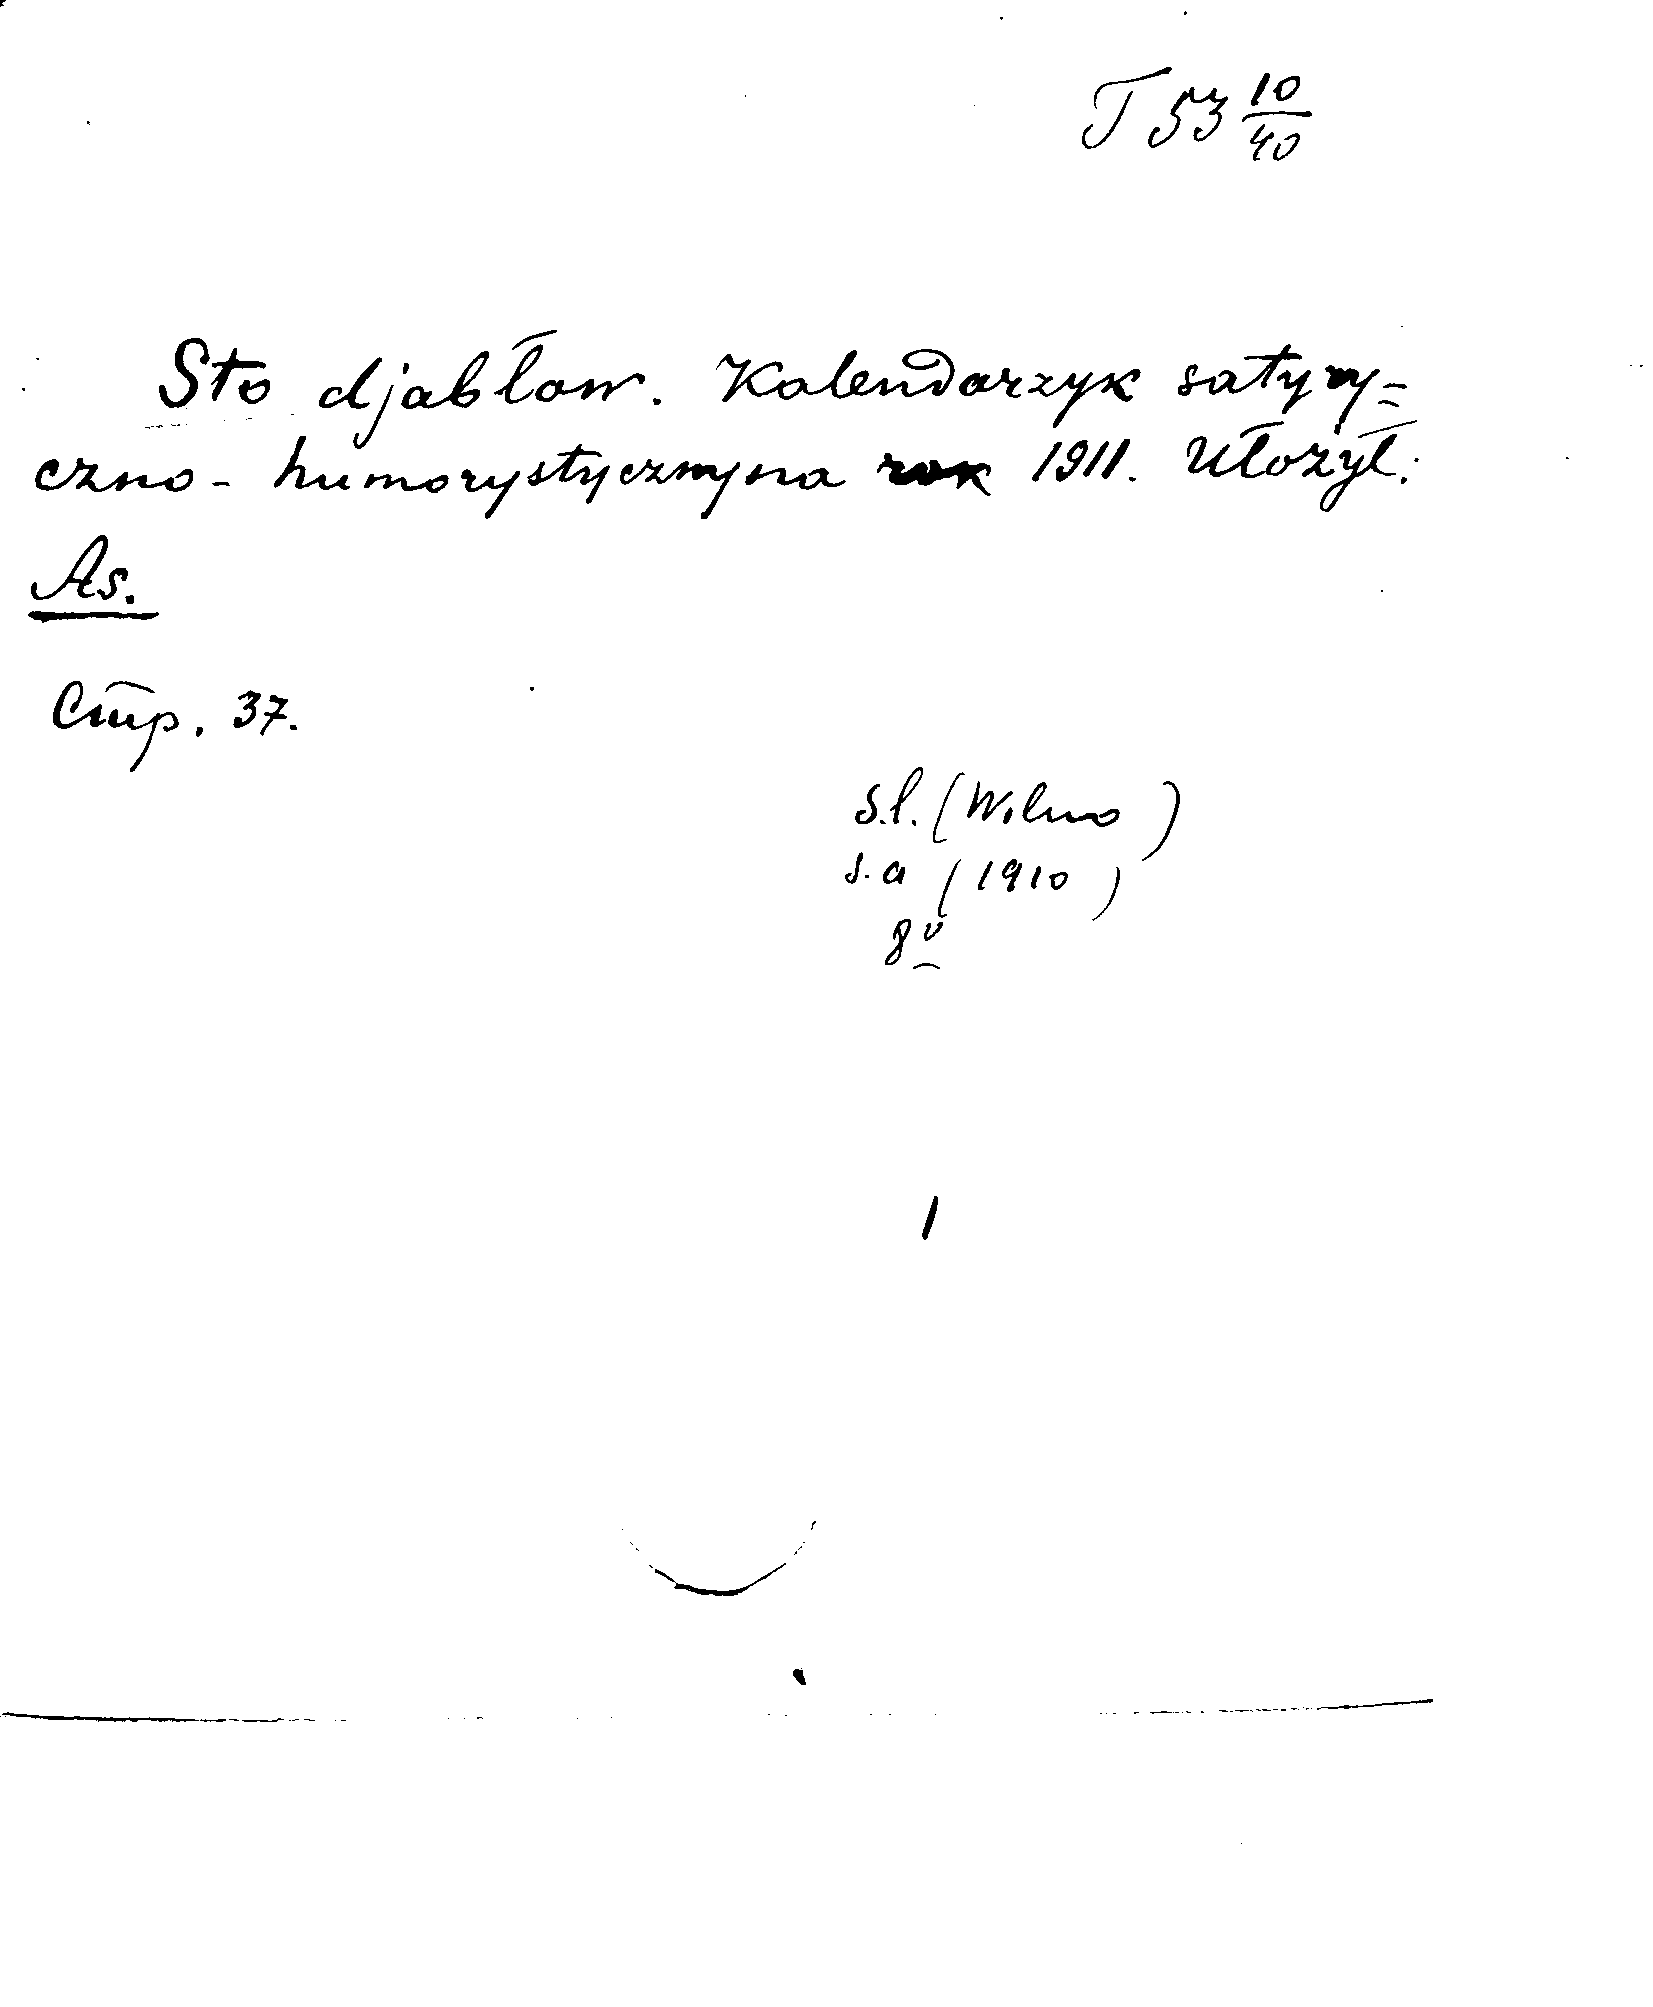 T 53 10/40
Sto djabłow. Kalendarzyk satyry-
czno-humorystyczny na rok 1911. Ułożył:
As.
Стр. 37.
s.l. (Wilno)
s.a (1910)
8º
1